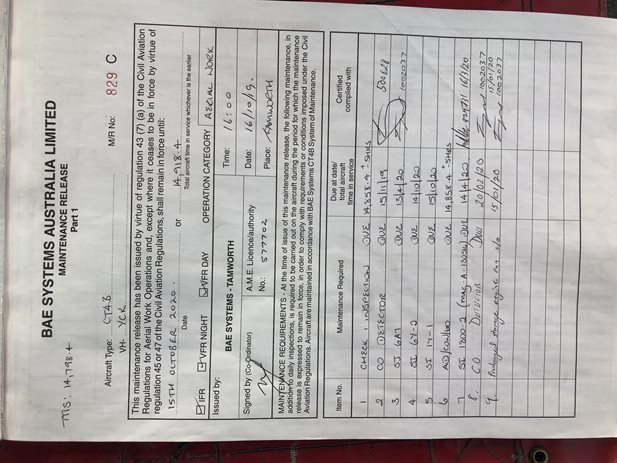 MS: 14,798.4
BAE SYSTEMS AUSTRALIA LIMITED
MAINTENANCE RELEASE
Part 1
Aircraft Type: CT4B M/R No: 829 C
VH- YCK
This maintenance release has been issued by virtue of regulation 43 (7) (a) of the Civil Aviation
Regulations for Aerial Work Operations and, except where it ceases to be in force by virtue of
regulation 45 or 47 of the Civil Aviation Regulations, shall remain in force until:
15TH OCTOBER 2020 or 14,918.4
Date Total aircraft time in service whichever is the earlier
IFR VFR NIGHT VFR DAY OPERATION CATEGORY AERIAL WORK
Issued by: BAE SYSTEMS - TAMWORTH Time: 16:00
Signed by (Co-Ordinator) A.M.E. Licence/authority Date: 16/10/19
No.: 577702 Place: TAMWORTH
MAINTENANCE REQUIREMENTS - At the time of issue of this maintenance release, the following maintenance, in
addition to daily inspections, is required to be carried out on the aircraft during the period for which the maintenance
release is expressed to remain in force, in order to comply with requirements or conditions imposed under the Civil
Aviation Regulations. Aircraft are maintained in accordance with BAE Systems CT4B System of Maintenance.
Item No. Maintenance Required Due at date/ total aircraft time in service Certified complied with
1 CHECK 1 INSPECTION DUE 14,858.4 + 5HRS
2 CO DETECTOR DUE 15/1/19 504828
3 SI 6A1 DUE 13/4/20 1002037
4 SI 6Y-2 DUE 14/10/20
5 SI 1Y-1 DUE 15/10/20
6 DUE 14,858.4 + 5HRS
7 SI 1300-2 DUE 14/4/20 16/3/20
8. CO Detector Due 20/02/20 1002037
9. Prolonged engine 15/01/20 15/01/20 1002037